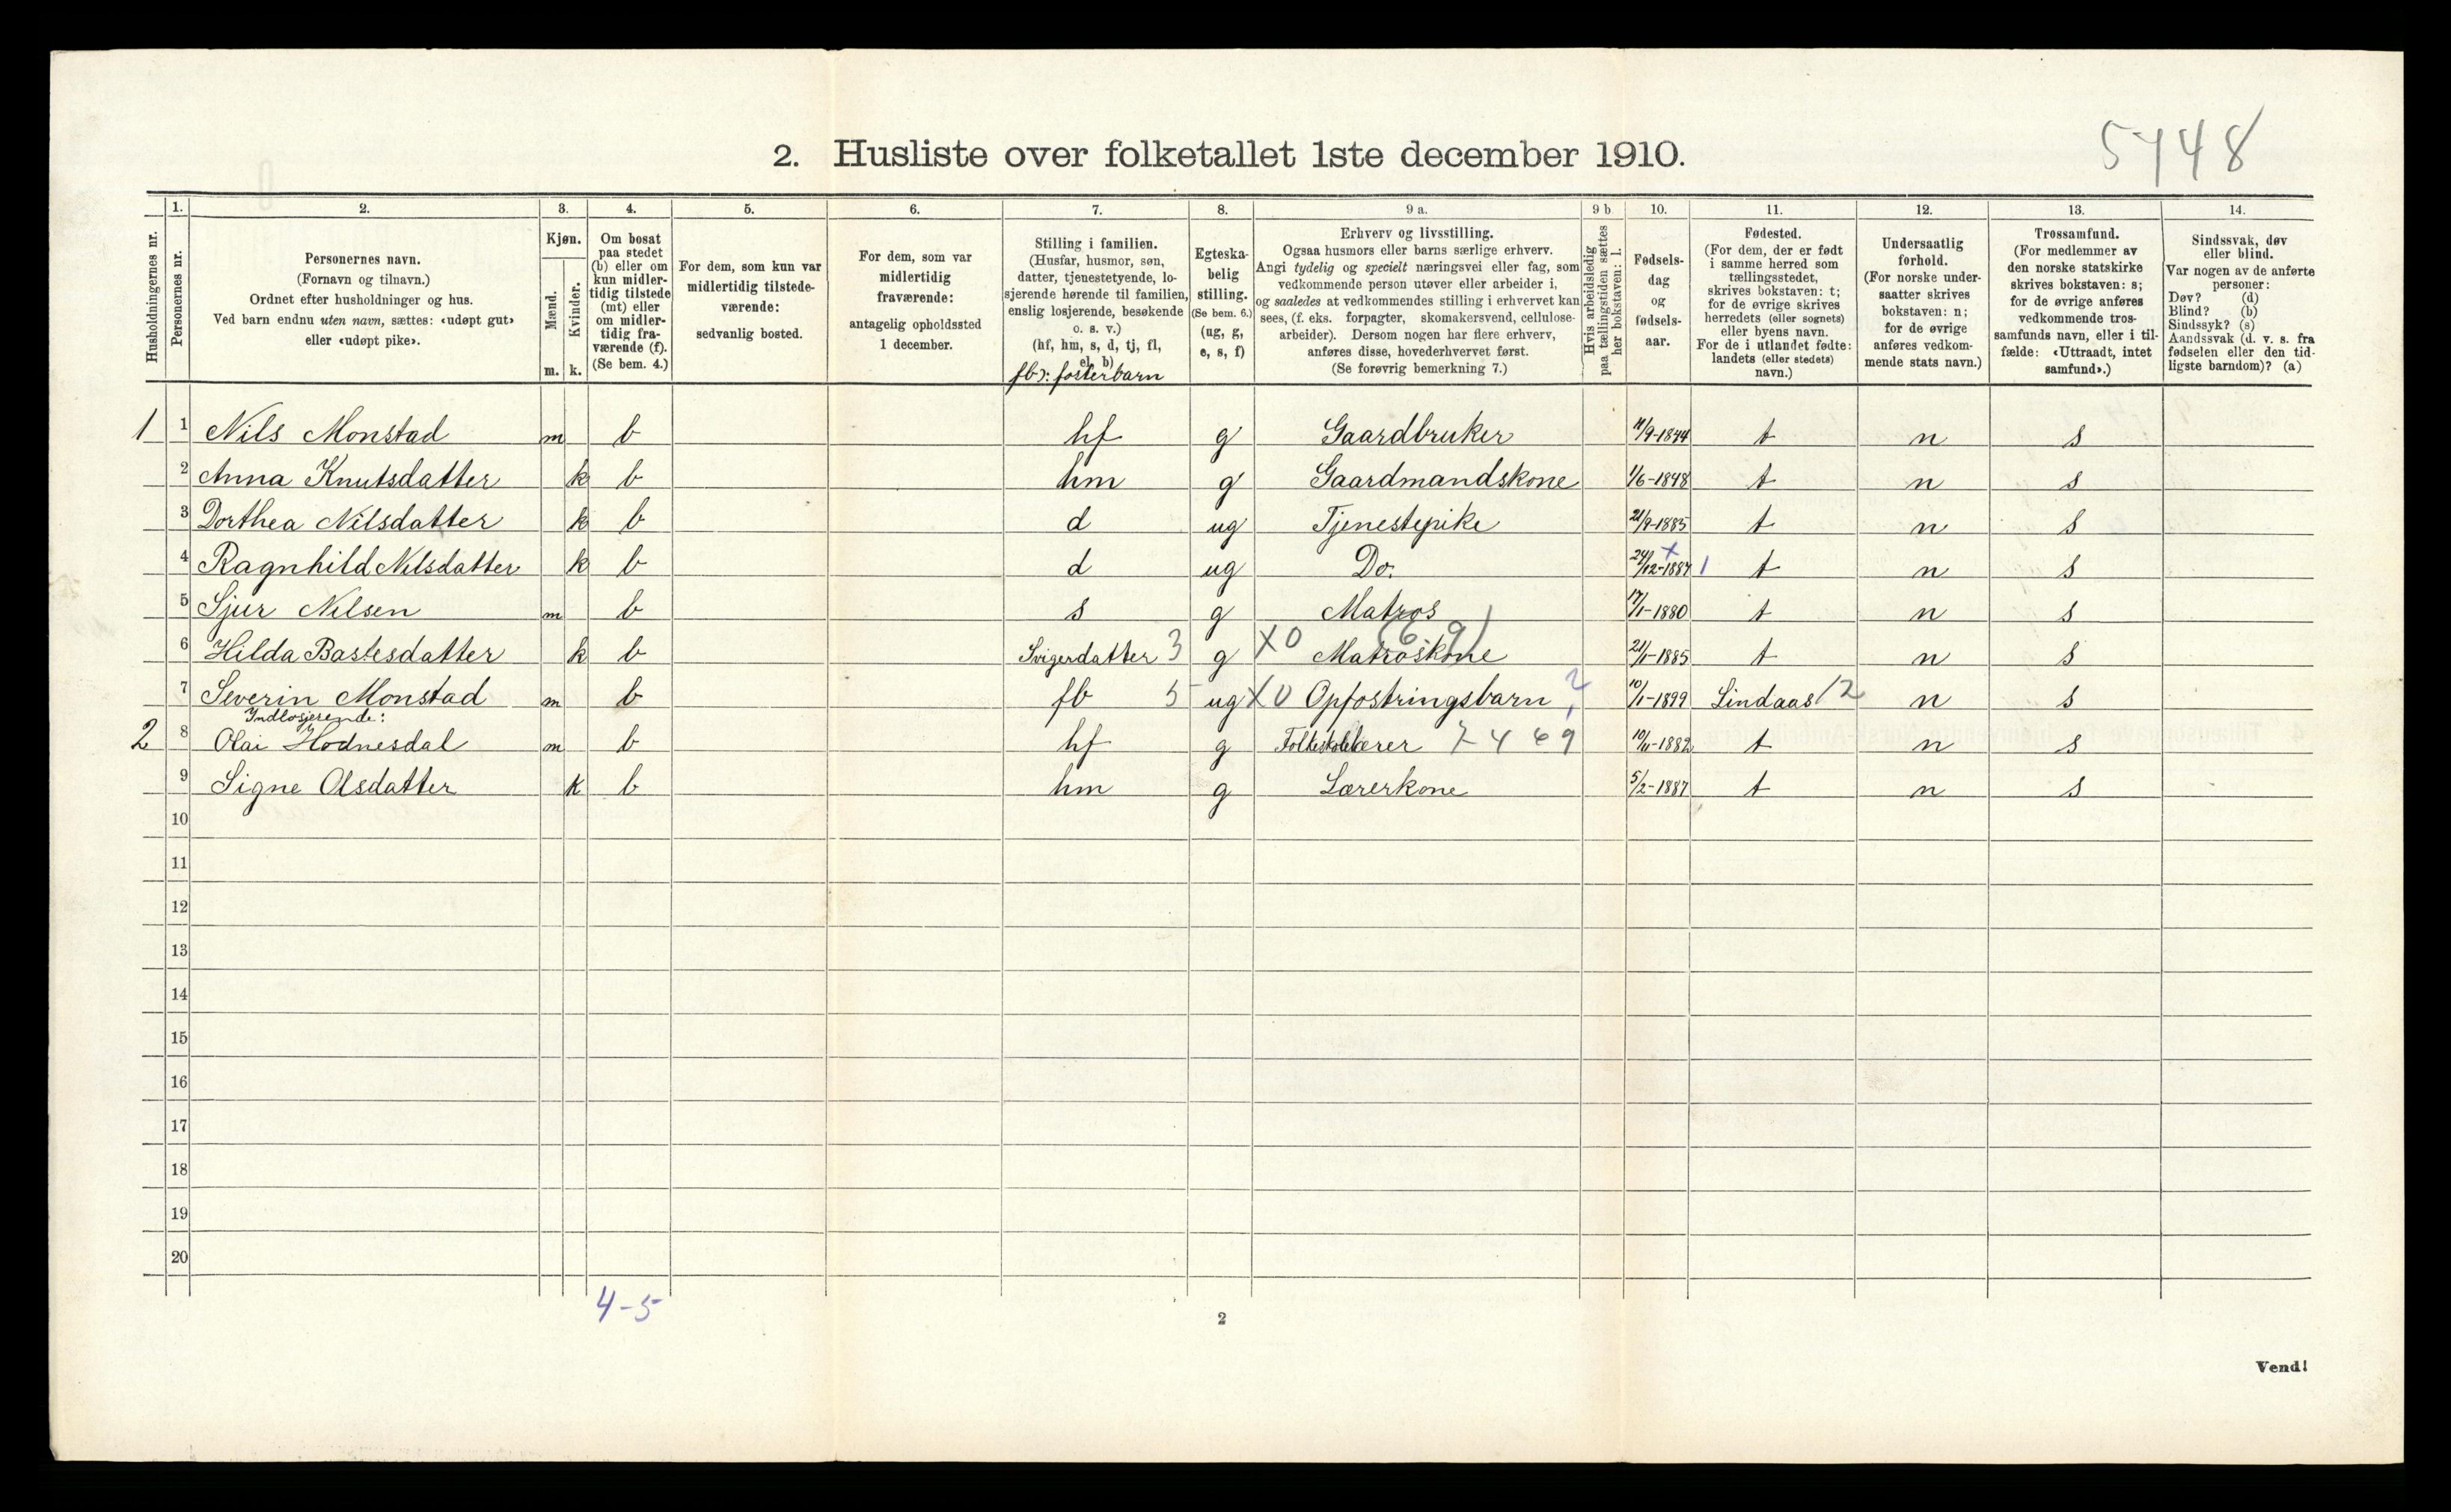 5748
2. Husliste over folketallet 1ste december 1910.
Husholdningernes nr.
1.
Personernes nr.
2.
Personernes navn.
(Fornavn og tilnavn.)
Ordnet efter husholdninger og hus.
Ved barn endnu uten navn, sættes: «udøpt gut»
eller «udøpt pike».
3.
Kjøn.
Mænd.
Kvinder.
m. k.
4.
Om bosat
paa stedet
(b) eller om
kun midler-
tidig tilstede
(mt) eller
om midler-
tidig fra-
værende (f).
(Se bem. 4.)
5.
For dem, som kun var
midlertidig tilstede-
værende:
sedvanlig bosted.
6.
For dem, som var
midlertidig
fraværende:
antagelig opholdssted
1 december.
7.
Stilling i familien.
(Husfar, husmor, søn,
datter, tjenestetyende, lo-
sjerende hørende til familien,
enslig losjerende, besøkende
o. s. v.)
(hf, hm, s, d, tj, fl,
el, b)
fb): fosterbarn
8.
Egteska-
belig
stilling.
(Se bem. 6.)
(ug, g,
e, s, f)
9 a.
Erhverv og livsstilling.
Ogsaa husmors eller barns særlige erhverv.
Angi tydelig og specielt næringsvei eller fag, som
vedkommende person utøver eller arbeider i,
og saaledes at vedkommendes stilling i erhvervet kan
sees, (f. eks. forpagter, skomakersvend, cellulose-
arbeider). Dersom nogen har flere erhverv,
anføres disse, hovederhvervet først.
(Se forøvrig bemerkning 7.)
9 b
Hvis arbeidsledig
paa tællingstiden sættes
her bokstaven: l.
10.
Fødsels-
dag
og
fødsels-
aar.
11.
Fødested.
(For dem, der er født
i samme herred som
tællingsstedet,
skrives bokstaven: t;
for de øvrige skrives
herredets (eller sognets)
eller byens navn.
For de i utlandet fødte:
landets (eller stedets)
navn.)
12.
Undersaatlig
forhold.
(For norske under-
saatter skrives
bokstaven: n;
for de øvrige
anføres vedkom-
mende stats navn.)
13.
Trossamfund.
(For medlemmer av
den norske statskirke
skrives bokstaven: s;
for de øvrige anføres
vedkommende tros-
samfunds navn, eller i til-
fælde: «Uttraadt, intet
samfund».)
14.
Sindssvak, døv
eller blind.
Var nogen av de anførte
personer:
Døv? (d)
Blind? (b)
Sindssyk? (s)
Aandssvak (d. v. s. fra
fødselen eller den tid-
ligste barndom)? (a)
1 1 Nils Monstad m b hf g Gaardbruker 11/9-1844 t n s
2 Anna Knutsdatter k b hm g Gaardmandskone 1/6-1848 t n s
3 Dorthea Nilsdatter k b d ug Tjenestepike 21/9-1885 t n s
4 Ragnhild Nilsdatter k b d ug Do. 24/12-1887 x 1 t n s
5 Sjur Nilsen m b s g Matros 17/1-1880 t n s
6 Hilda Bastesdatter k b Svigerdatter 3 g X0 Matroskone 21/1-1885 t n s
7 Severin Monstad m b fb 5 ug X0 Opfostringsbarn 10/1-1899 Lindaas 12 n s
Indlosjerende:
2 8 Olai Hodnesdal m b hf g Folkeskolelærer 10/11-1882 t n s
9 Signe Olsdatter k b hm g Lærerkone 5/2-1887 t n s
10
11
12
13
14
15
16
17
18
19
20
4-5
2
Vend!